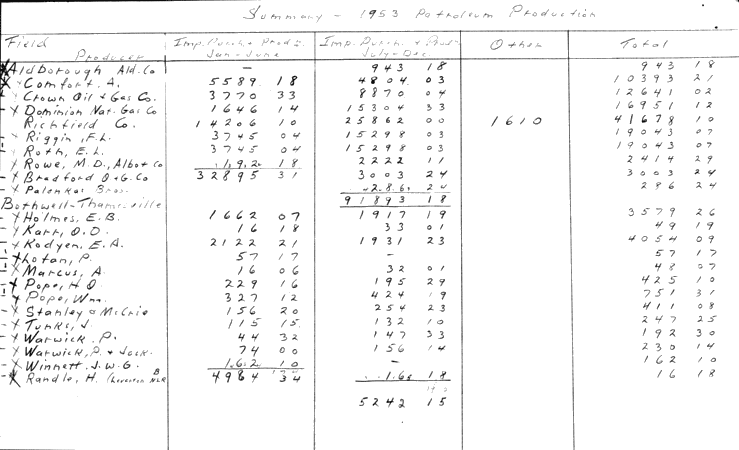 Summary - 1953 Petroleum Production
Field Producer Imp. Purch. + Prod'n. Jan-June Imp. Purch. + Prod'n July-Dec. Other Total
Aldborough Ald. Co — 943 18 943 18
Comfort. A. 5589 18 4804 03 10393 21
Crown Oil + Gas Co. 3770 33 8870 04 12641 02
Dominion Nat. Gas Co 1646 14 15304 33 16951 12
Richfield Co. 14206 10 25862 00 1610 41678 10
Riggin, F.L. 3745 04 15298 03 19043 07
Roth, E.L. 3745 04 15298 03 19043 07
Rowe, M.D., Albot Co 192 18 2222 11 2414 29
Bradford O+G.Co 32895 31 3003 24 3003 24
Palenkas Bros. 286 24 286 24
Bothwell-Thamesville 91893 18
Holmes, E.B. 1662 07 1917 19 3579 26
Karr, O.D. 16 18 33 01 49 19
Kodyen, E.A. 2122 21 1931 23 4054 09
Lofan, P. 57 17 — 57 17
Marcus, A. 16 06 32 01 48 07
Pope, H.O. 229 16 195 29 425 10
Pope, Wm. 327 12 424 19 751 31
Stanley & McCrie 156 20 254 23 411 08
Tunks, J. 115 15 132 10 247 25
Warwick, P. 44 32 147 33 192 30
Warwick, P. + Jack. 74 00 156 14 230 14
Winnett, J.W.G. 162 10 — 162 10
Randle, H. 4984 34 16 18 16 18
5242 15